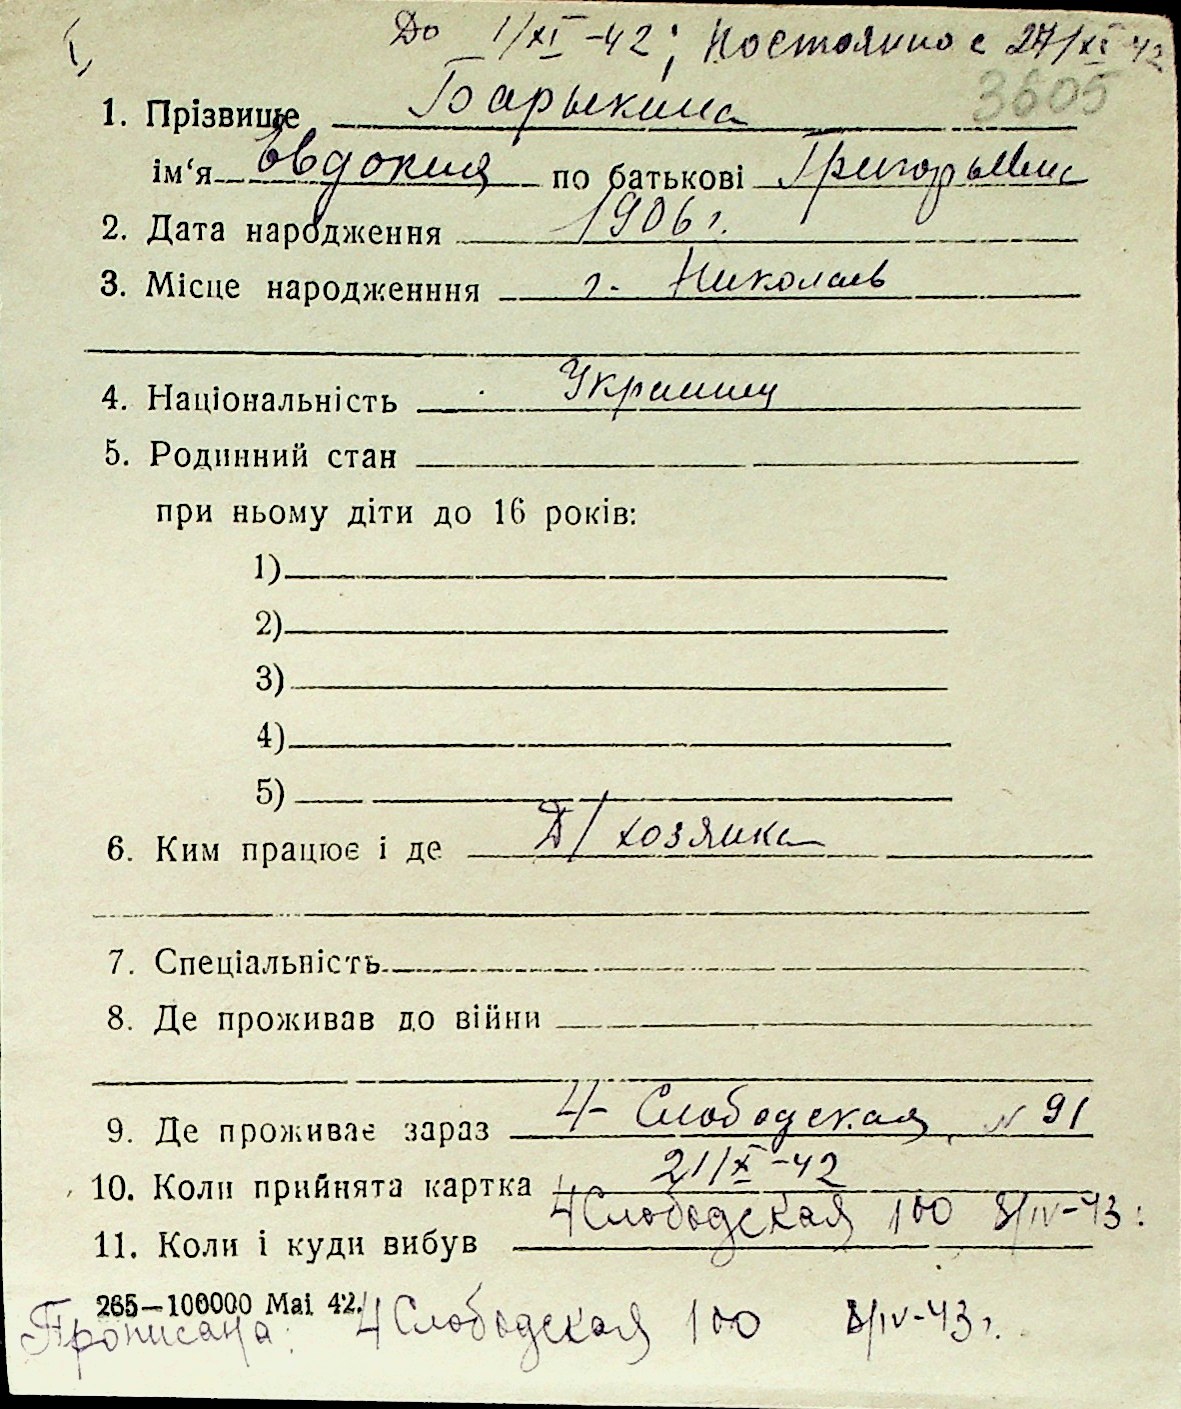 До 1/XI-42; Постоянно с 27/XI 42
3605
1. Прізвище Барыкина
ім‘я Евдокия по батькові Григорьевна
2. Дата народження 1906 г.
3. Місце народженння г. Николаев
4. Національність Украинец
5. Родинний стан
при ньому діти до 16 років:
1)
2)
3)
4)
5)
6. Ким працює і де Д/хозяйка
7. Спеціальність
8. Де проживав до війни
9. Де проживає зараз 4- Слободская N 91
10. Коли прийнята картка 21/X-42
11. Коли і куди вибув 4 Слободская 100 8/IV-43г.
265—100000 Mai 42.
Прописана: 4 Слободская 100 8/IV-43г.